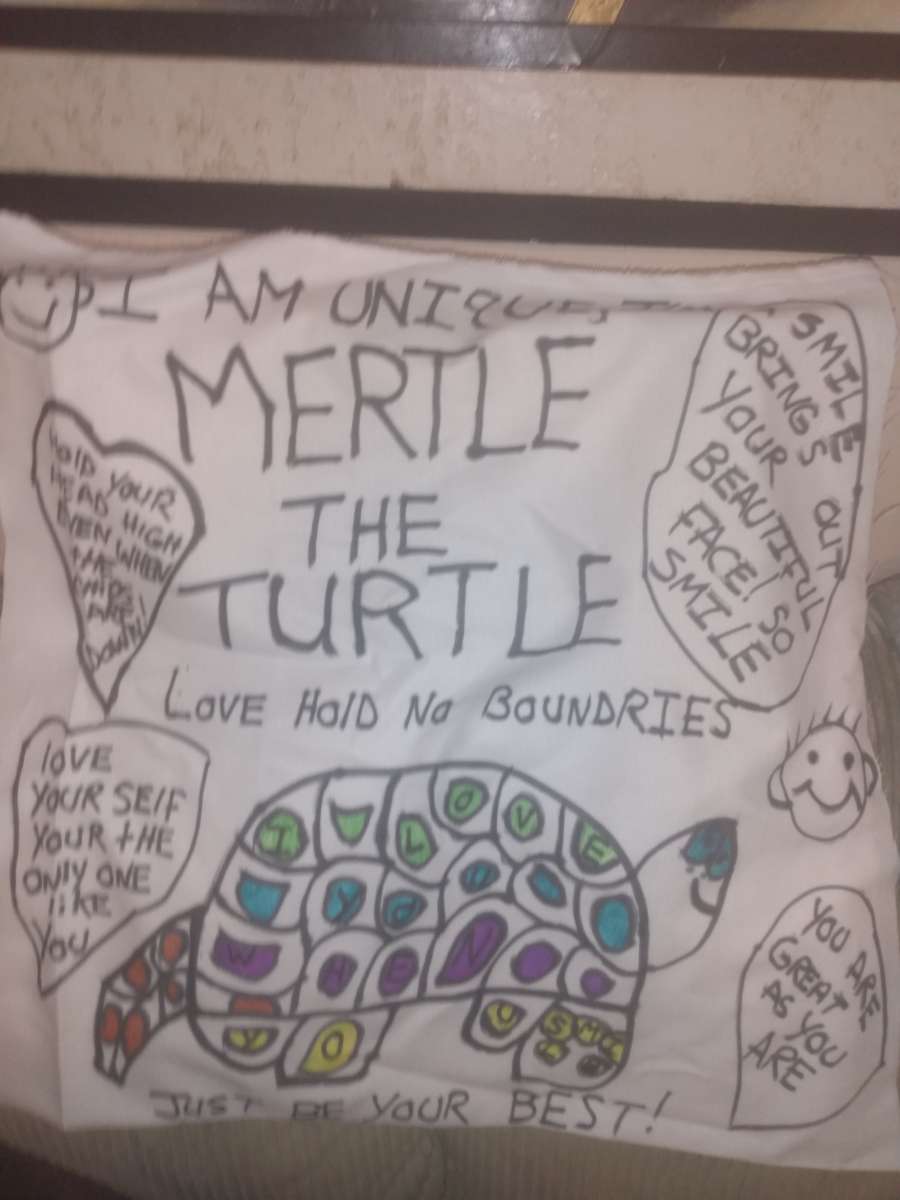 I AM UNIQUE
MERTLE
THE
TURTLE
LOVE HOlD NO BOUNDRIES
HOlD YOUR
HEAD HIGH
EVEN WHEN
tHE
CHIPS
ARE
DOWN!
SMILE
BRINGS OUT
YOUR
BEAUTIFUL
FACE! SO
SMILE
lOVE
YOUR SElF
YOUR tHE
ONlY ONE
liKE
YOU
I LOVE
YOU
WHEN
YOU
YOU ARE
GREAT
AS YOU
ARE
JUST BE YOUR BEST!